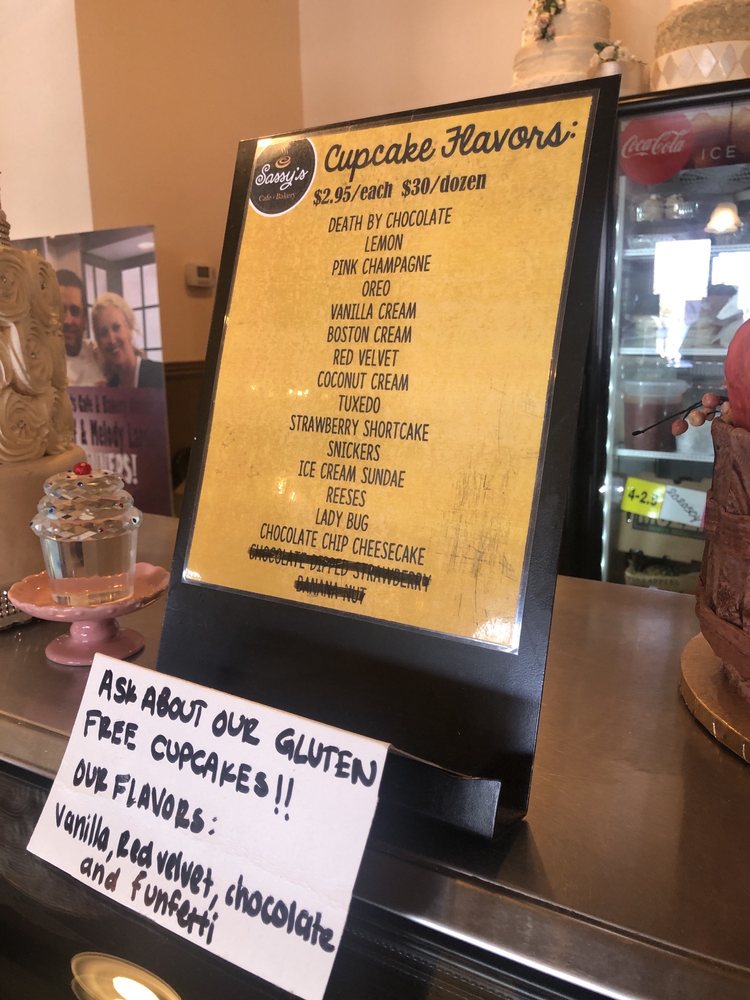 Sassy's
Cafe • Bakery
Cupcake Flavors:
$2.95/each $30/dozen
DEATH BY CHOCOLATE
LEMON
PINK CHAMPAGNE
OREO
VANILLA CREAM
BOSTON CREAM
RED VELVET
COCONUT CREAM
TUXEDO
STRAWBERRY SHORTCAKE
SNICKERS
ICE CREAM SUNDAE
REESES
LADY BUG
CHOCOLATE CHIP CHEESECAKE
CHOCOLATE DIPPED STRAWBERRY
BANANA NUT
ASK ABOUT OUR GLUTEN
FREE CUPCAKES!!
OUR FLAVORS:
vanilla, Red velvet, chocolate
and funfetti
Coca-Cola
ICE
's Cafe & Bakery
& Melody